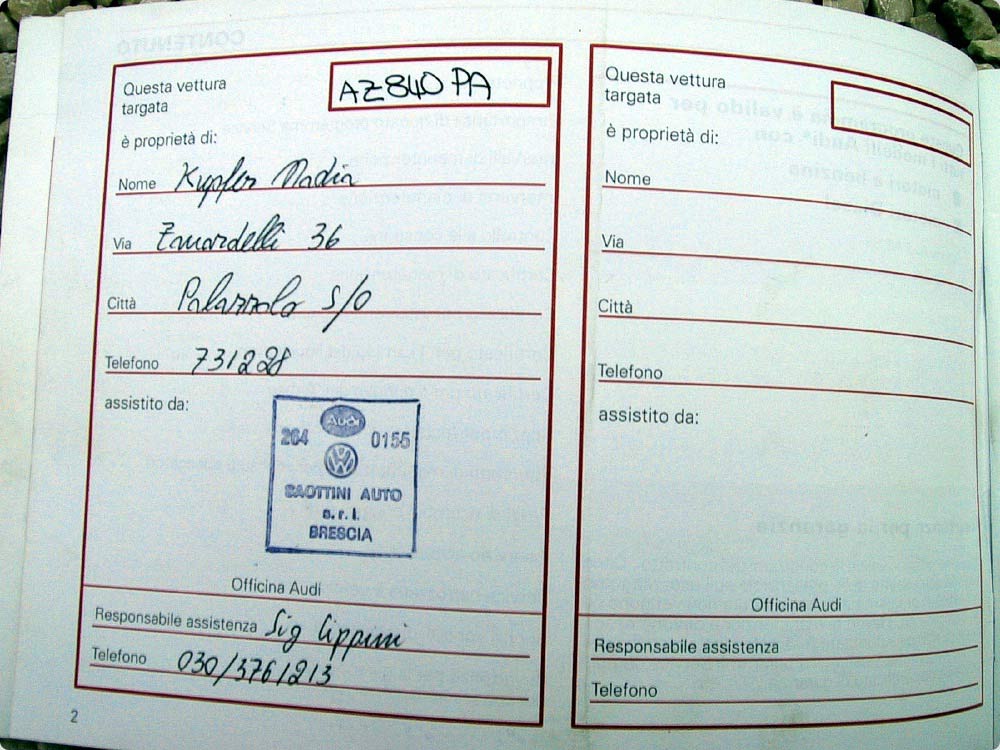 Questa vettura
targata
AZ840PA
è proprietà di:
Nome Kupfer Nadia
Via Zanardelli 36
Città Palazzolo S/O
Telefono 731228
assistito da:
Audi
264 0155
SAOTTINI AUTO
s.r.l.
BRESCIA
Officina Audi
Responsabile assistenza Sig Lippini
Telefono 030/3761213
2
Questa vettura
targata
è proprietà di:
Nome
Via
Città
Telefono
assistito da:
Officina Audi
Responsabile assistenza
Telefono